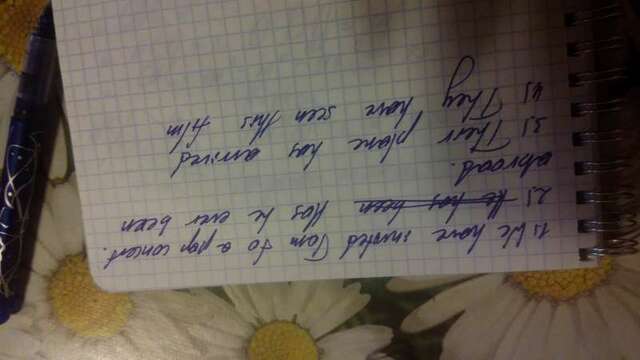 1.) We have invited Tom to a pop concert.
2.) He has been Has he ever been
abroad.
3.) Their plane has arrived
4.) They have seen this film